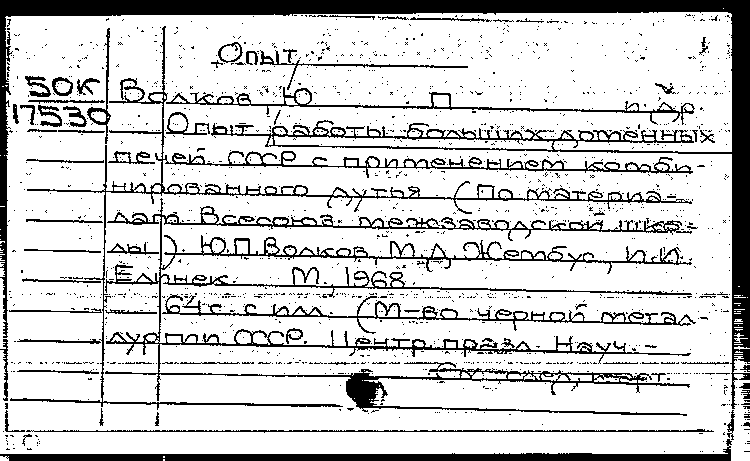 Опыт
50К Волков Ю П и др.
17530
Опыт работы больших доменных
печей СССР с применением комби-
нированного дутья (По материа-
лам Всесоюз. межзаводской шко-
лы). Ю.П.Волков, М.Д. Жембус, И.И.
Елинек. М., 1968.
64 с. с илл. (М-во черной метал-
лургии СССР. Центр. правл. Науч.-
См. след. карт.